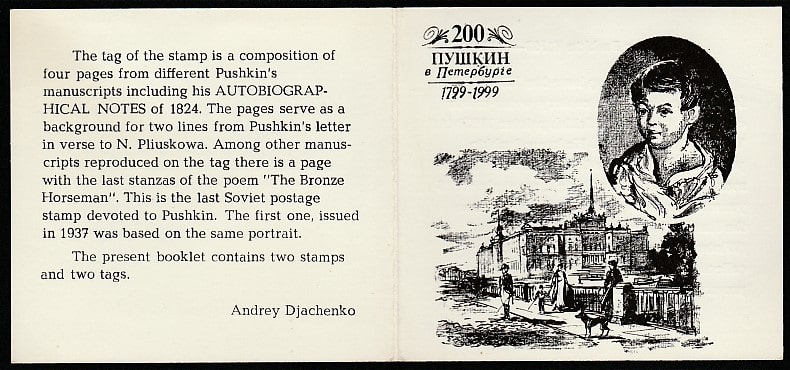 The tag of the stamp is a composition of
four pages from different Pushkin's
manuscripts including his AUTOBIOGRAP-
HICAL NOTES of 1824. The pages serve as a
background for two lines from Pushkin's letter
in verse to N. Pliuskowa. Among other manus-
cripts reproduced on the tag there is a page
with the last stanzas of the poem "The Bronze
Horseman". This is the last Soviet postage
stamp devoted to Pushkin. The first one, issued
in 1937 was based on the same portrait.
The present booklet contains two stamps
and two tags.
Andrey Djachenko
200
ПУШКИН
в Петербурге
1799-1999